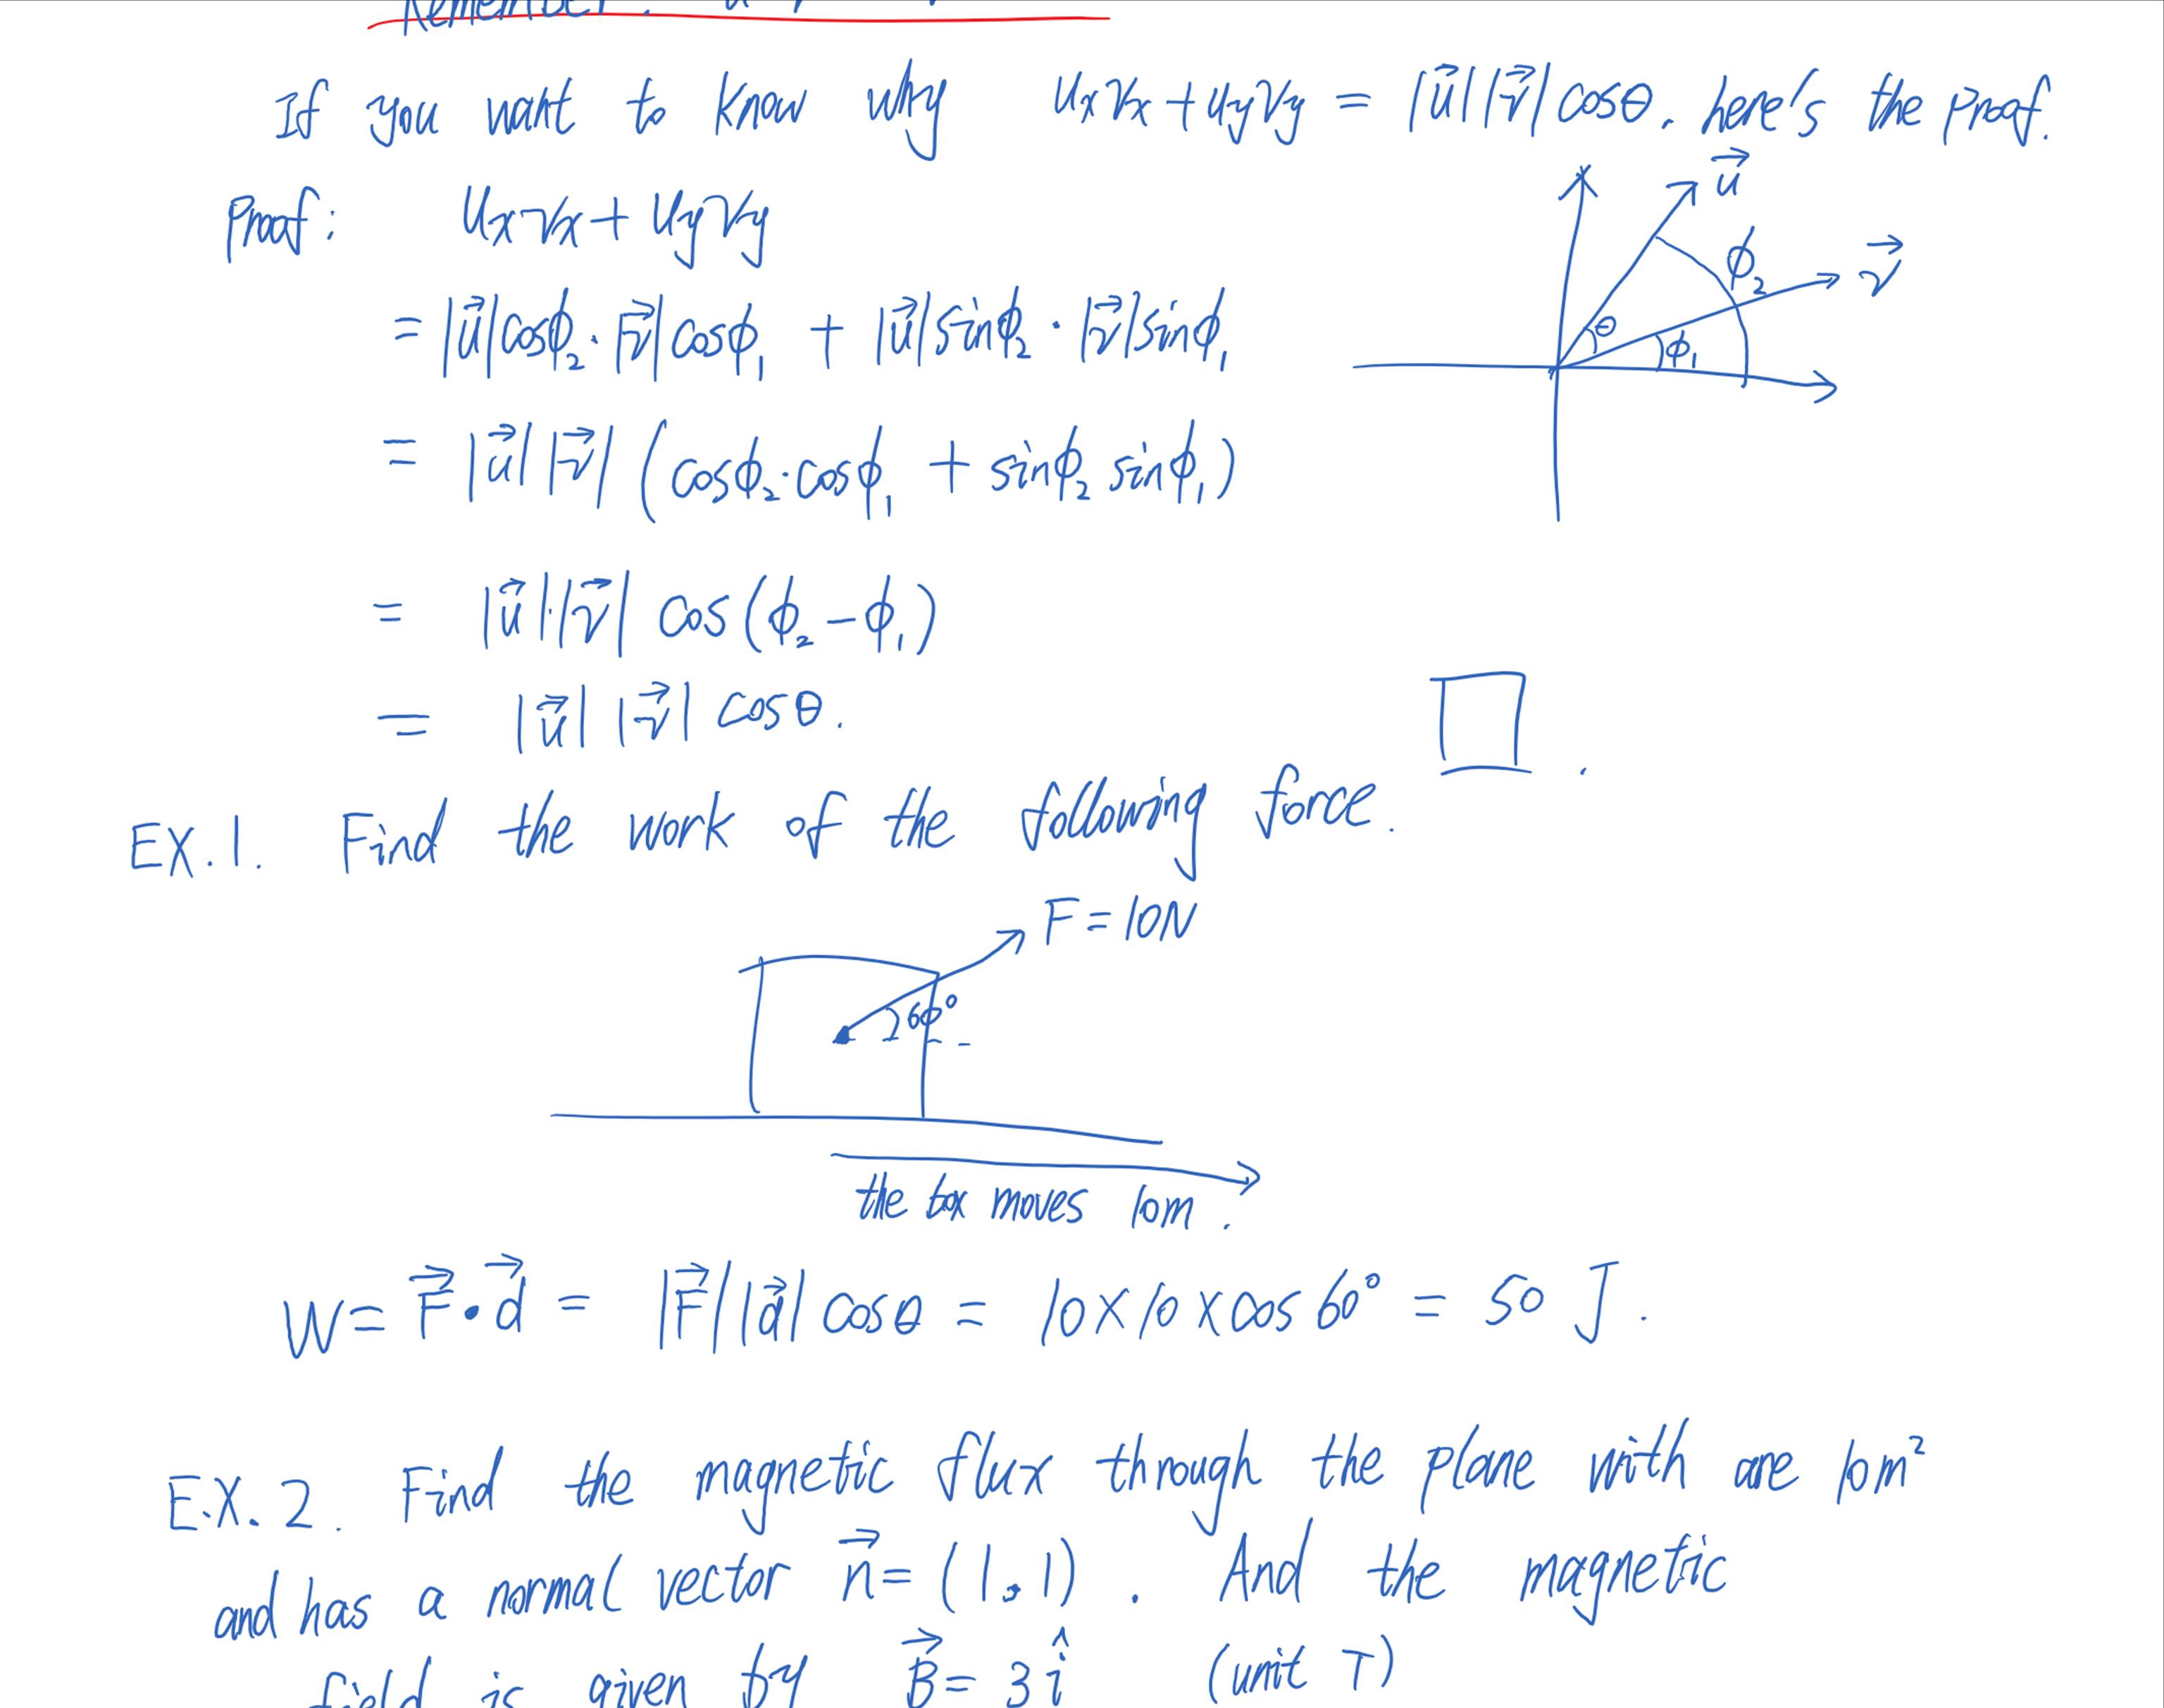 Remember :
If you want to know why uxvx + uyvy = |u⃗||v⃗| cosθ. here's the proof.
Proof: uxvx + uyvy
= |u⃗|cosϕ₂ · |v⃗|cosϕ₁ + |u⃗|sinϕ₂ · |v⃗|sinϕ₁
= |u⃗||v⃗| (cosϕ₂ · cosϕ₁ + sinϕ₂ sinϕ₁)
= |u⃗|·|v⃗| cos(ϕ₂ − ϕ₁)
= |u⃗| |v⃗| cosθ. □.
u⃗
ϕ₂
v⃗
θ
ϕ₁
EX.1. Find the work of the following force.
F = 10N
60°
the box moves 10m.
W = F⃗ · d⃗ = |F⃗||d⃗| cosθ = 10 × 10 × cos 60° = 50 J.
EX.2. Find the magnetic flux through the plane with are 10m²
and has a normal vector n⃗ = (1,1). And the magnetic
field is given by B⃗ = 3î (unit T)